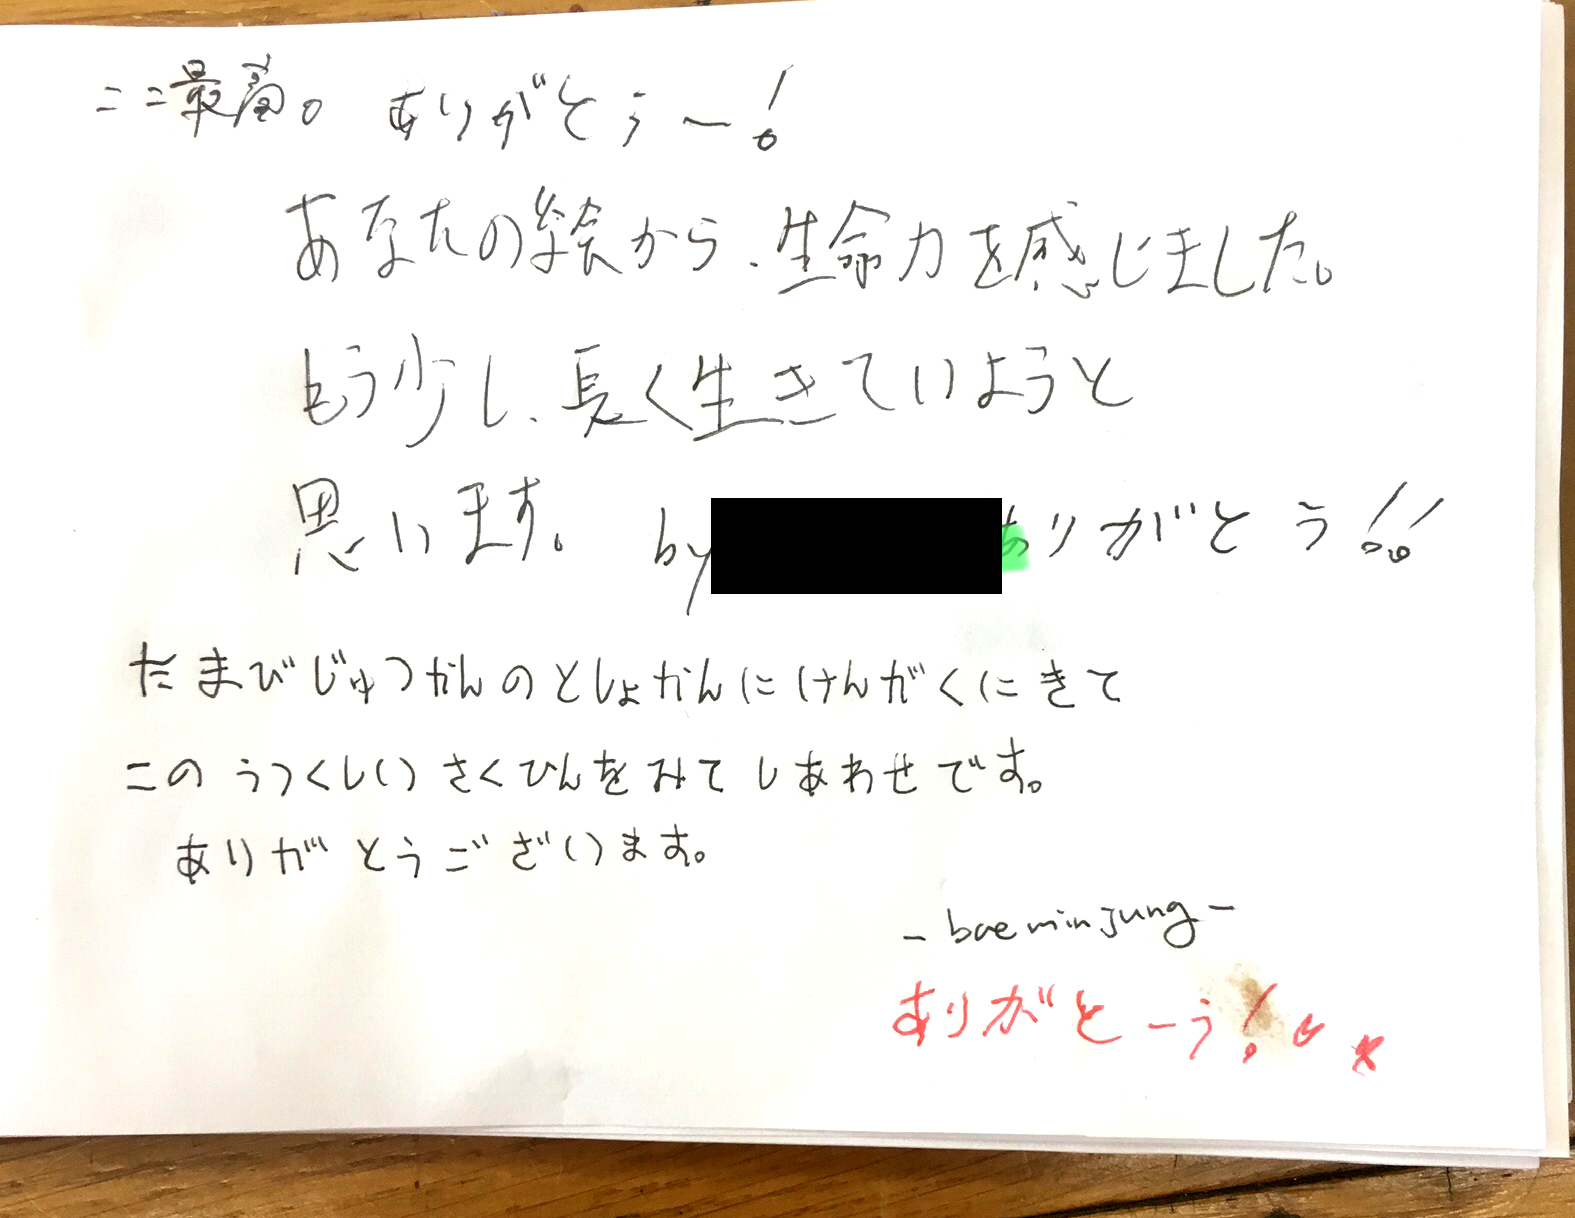 ここ最高。ありがとうー!
あなたの絵から、生命力を感じました。
もう少し、長く生きていようと
思います。 by ありがとう!!
たまびじゅつかんのとしょかんにけんがくにきて
このうつくしいさくひんをみてしあわせです。
ありがとうございます。
-baeminjung-
ありがとーう!